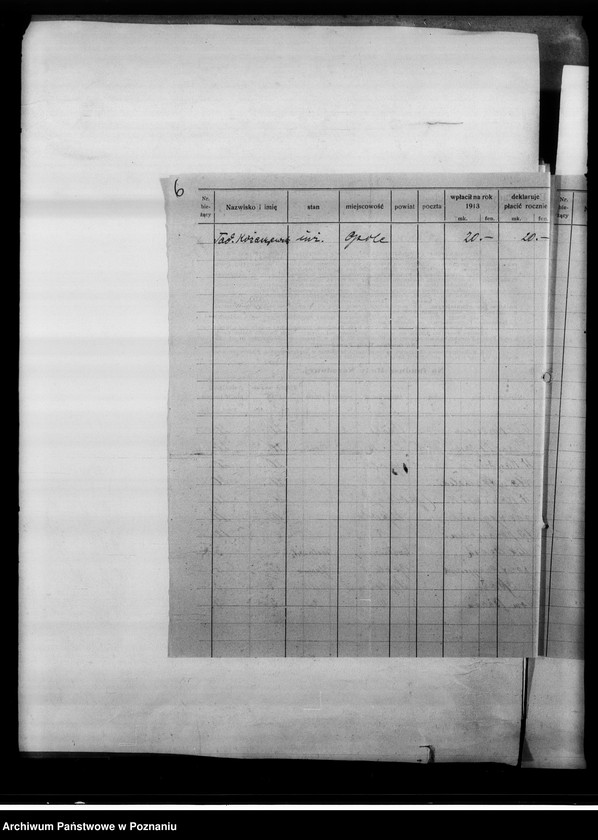 6
Nr. bie- żący Nazwisko i imię stan miejscowość powiat poczta wpłacił na rok 1913 mk. fen. deklaruje płacić rocznie mk. fen.
Tad. inż. Opole 20.— 20.—
Nr. bie- żący
Archiwum Państwowe w Poznaniu